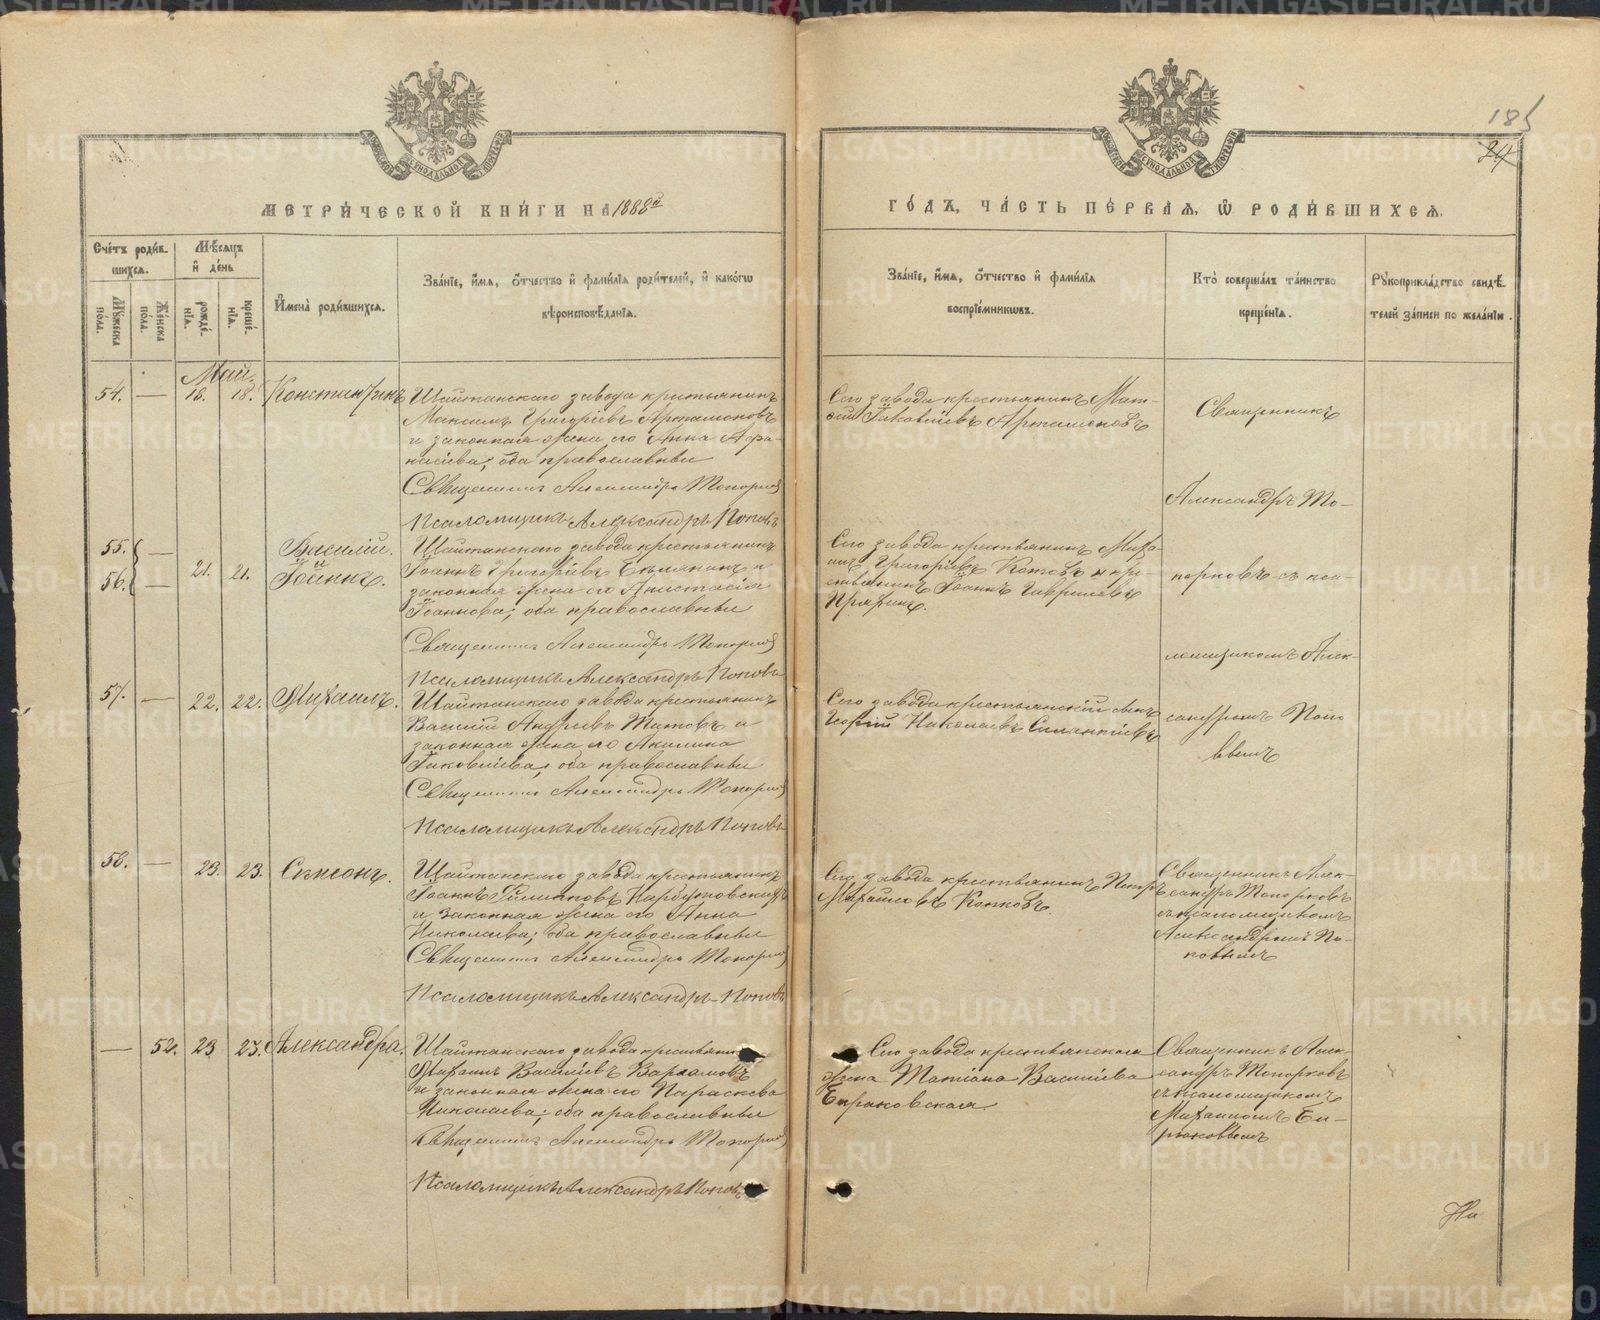 185
24
МЕТРИ́ЧЕСКОЙ КНИ́ГИ НА 1888й
ГО́ДЪ, ЧА́СТЬ ПЕ́РВАЯ, Ѡ РОДИ́ВШИХСЯ.
Сче́тъ роди́в-
шихся.
Мꙋ́жеска по́ла.
Же́нска по́ла.
Мѣ́сяцъ и де́нь
рожде́нїя.
креще́нїя.
И́мена̀ роди́вшихся.
Зва́нїе, и́мя, о́тчество и фами́лїя роди́телей, и како́гѡ
вѣроисповѣ́данїя.
Зва́нїе, и́мя, о́тчество и фами́лїя
воспрїе́мникѡвъ.
Кто̀ соверша́лъ та́инство
креще́нїя.
Рꙋкоприкла́дство свидѣ́-
телей за́писи по жела́нїю.
Май.
54. — 18. 18. Константинъ
Шайтанскаго завода крестьянинъ
Максимъ Григоріевъ Артамоновъ
и законная жена его Анна Афа-
насіева; оба православные
Священникъ Александръ Топорков
Псаломщикъ Александръ Поповъ
Сего завода крестьянинъ Мат-
ѳей Іаковлевъ Артамоновъ
Священникъ
Александръ То-
порковъ съ пса-
ломщикомъ Алек-
сандромъ Попо
вымъ
55. — Василій.
56. — 21. 21. Іоаннъ.
Шайтанскаго завода крестьянинъ
Іоаннъ Григоріевъ и
законная жена его Анастасія
Іоаннова; оба православные
Священникъ Александръ Топорков
Псаломщикъ Александръ Поповъ
Сего завода крестьянинъ Миха-
илъ Григоріевъ и кре-
стьянинъ Іоаннъ Гавриловъ
57. — 22. 22. Михаилъ.
Шайтанскаго завода крестьянинъ
Василій Андреевъ Титовъ и
законная жена его Акилина
Іаковлева; оба православные
Священникъ Александръ Топорков
Псаломщикъ Александръ Поповъ
Сего завода крестьянскій сынъ
Георгій Николаевъ
58. — 23. 23. Симеонъ.
Шайтанскаго завода крестьянинъ
Іоаннъ Филипповъ
и законная жена его Анна
Николаева; оба православные
Священникъ Александръ Топорков
Псаломщикъ Александръ Поповъ
Сего завода крестьянинъ Петръ
Михайловъ
Священникъ Алек-
сандръ Топорковъ
съ псаломщикомъ
Александромъ По-
повымъ
— 52. 23 23. Александра.
Шайтанскаго завода крестьянин
Михаилъ Василіевъ Варламовъ
и законная жена его Параскева
Николаева; оба православные
Священникъ Александръ Топорков
Псаломщикъ Александръ Поповъ
Сего завода крестьянская
жена Татіана Василіева
Священникъ Алек-
сандръ Топорковъ
съ псаломщикомъ
Михаиломъ Би-
рюковымъ
На
METRIKI.GASO-URAL.RU